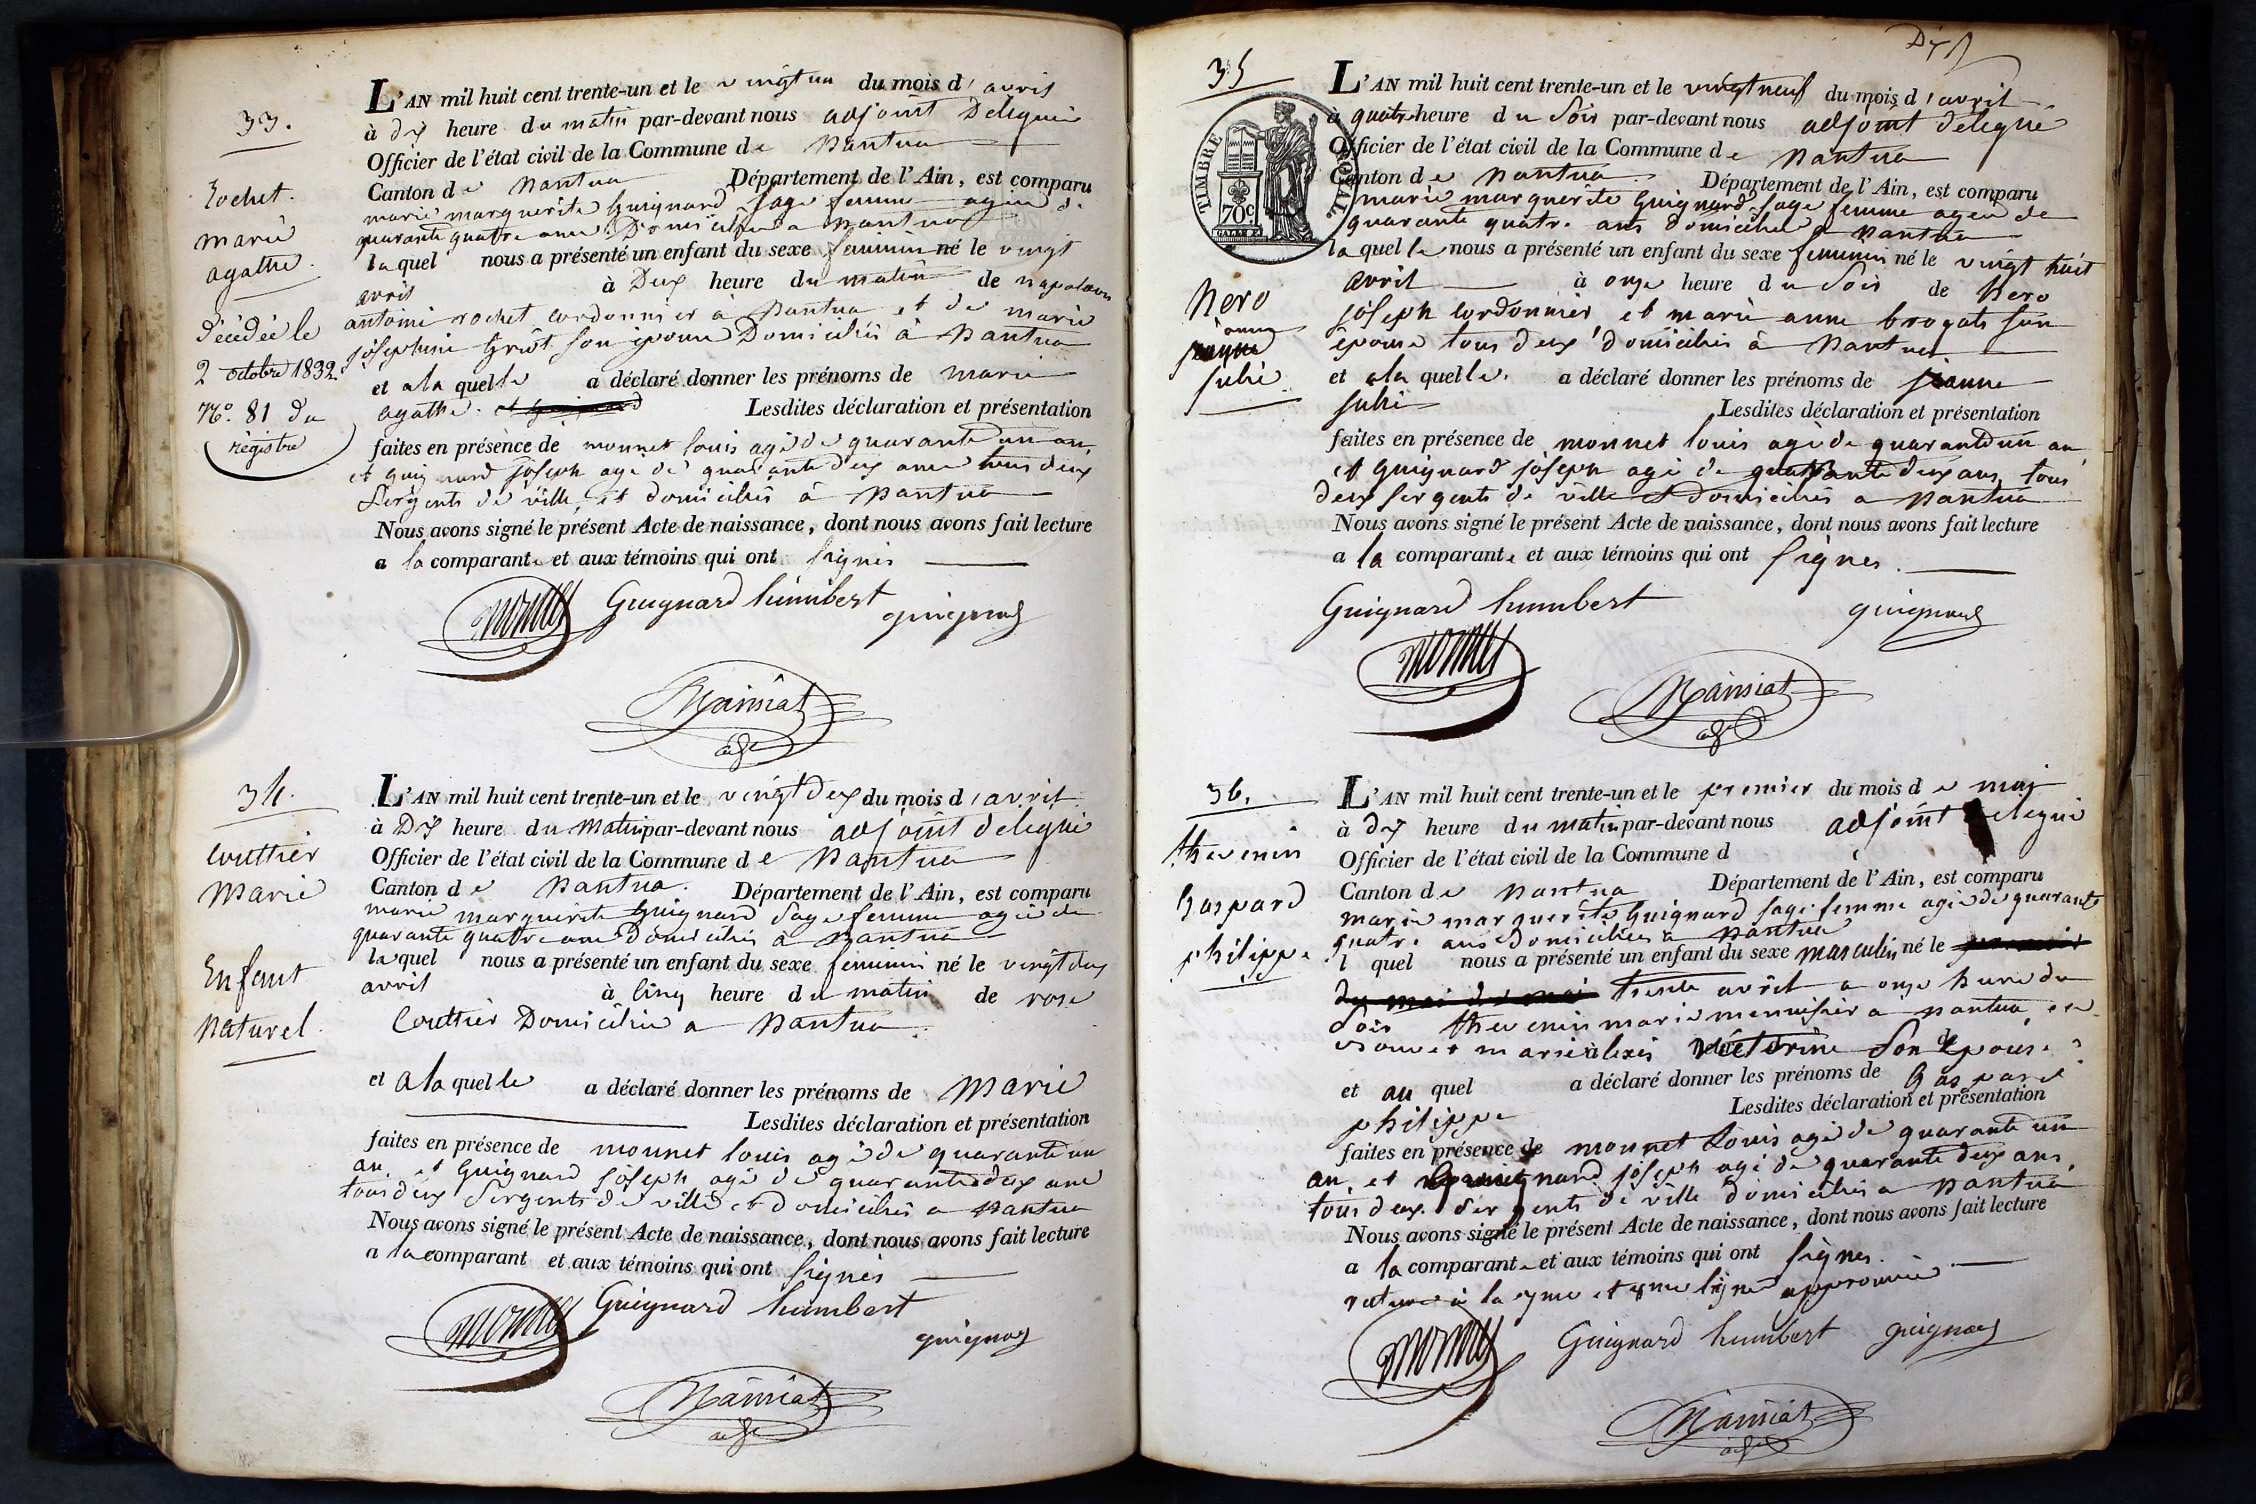 33.
Rochet.
Marie
agathe.
Décédée le
2 octobre 1832.
No. 81 du
régistre
L'AN mil huit cent trente-un et le vingt un du mois d'avril
à dix heure du matin par-devant nous adjoint Delegué
Officier de l'état civil de la Commune de Nantua
Canton de Nantua Département de l'Ain, est comparu
marie marguerite Guignard sage femme agée de
quarante quatre ans Domiciliée a nantua
laquel nous a présenté un enfant du sexe feminin né le vingt
avril à Deux heure du matin de napoleon
antoine rochet cordonnier à Nantua et de marie
josephine Griot son épouse Domiciliés à Nantua
et a la quelle a déclaré donner les prénoms de marie
agathe. Lesdites déclaration et présentation
faites en présence de monnet louis agé de quarante un an
et guignard joseph age de quarante deux ans tous deux
Sergents de ville, et domiciliés à Nantua
Nous avons signé le présent Acte de naissance, dont nous avons fait lecture
a la comparante et aux témoins qui ont signés
monnet Guignard humbert guignard
Mainiat
adj
34.
Couttier
Marie
Enfant
Naturel
L'AN mil huit cent trente-un et le vingt deux du mois d'avril
à Dix heure du Matin par-devant nous adjoint delegué
Officier de l'état civil de la Commune de Nantua
Canton de Nantua. Département de l'Ain, est comparu
marie marguerite Guignard Sage femme agée de
quarante quatre ans domiciliée à nantua
laquel nous a présenté un enfant du sexe feminin né le vingt deux
avril à Cinq heure du matin de rose
Couttier Domiciliée a Nantua.
et a la quelle a déclaré donner les prénoms de Marie
Lesdites déclaration et présentation
faites en présence de monnet louis agé de quarante un
an et Guignard joseph agé de quarante deux ans
tous deux Sergents de ville et domiciliés a Nantua
Nous avons signé le présent Acte de naissance, dont nous avons fait lecture
a la comparant et aux témoins qui ont signés
monnet Guignard humbert guignard
Mainiat
adj
35
Nero
jeanne
julie
TIMBRE ROYAL
70c
L'AN mil huit cent trente-un et le vingt neuf du mois d'avril
à quatre heure du Soir par-devant nous adjoint delegué
Officier de l'état civil de la Commune de Nantua
Canton de Nantua. Département de l'Ain, est comparu
marie marguerite Guignard Sage femme agée de
quarante quatre ans domiciliée a nantua
laquelle nous a présenté un enfant du sexe feminin né le vingt huit
avril à onze heure du Soir de Nero
joseph Cordonnier et marie anne brogats son
épouse tous deux domiciliés à Nantua
et a la quelle. a déclaré donner les prénoms de jeanne
julie Lesdites déclaration et présentation
faites en présence de monnet louis agé de quarante un an
et Guignard joseph agé de quarante deux ans, tous
deux sergents de ville et domiciliés a Nantua
Nous avons signé le présent Acte de naissance, dont nous avons fait lecture
a la comparante et aux témoins qui ont signés.
Guignard humbert guignard
monnet
Mainiat
adj
36.
thevenin
Gaspard
philippe
L'AN mil huit cent trente-un et le premier du mois de mai
à dix heure du matin par-devant nous adjoint delegué
Officier de l'état civil de la Commune d
Canton de Nantua Département de l'Ain, est comparu
marie marguerite Guignard sage femme agée de quarante
quatre ans domiciliée a Nantua
l quel nous a présenté un enfant du sexe masculin né le
trente avril a onze heure du
Soir thevenin marie menuisier à nantua, et
son épouse
et au quel a déclaré donner les prénoms de Gaspard
philippe Lesdites déclaration et présentation
faites en présence de monnet Louis agé de quarante un
an, et guignard joseph agé de quarante deux ans,
tous deux Sergents de ville domiciliés a Nantua
Nous avons signé le présent Acte de naissance, dont nous avons fait lecture
a la comparante et aux témoins qui ont signés.
rature à la 7me et 8me ligne approuvée
monnet Guignard humbert guignard
Mainiat
adj